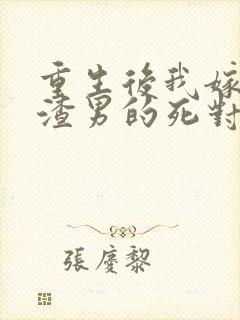 重生後我嫁
渣男的死對
張慶黎